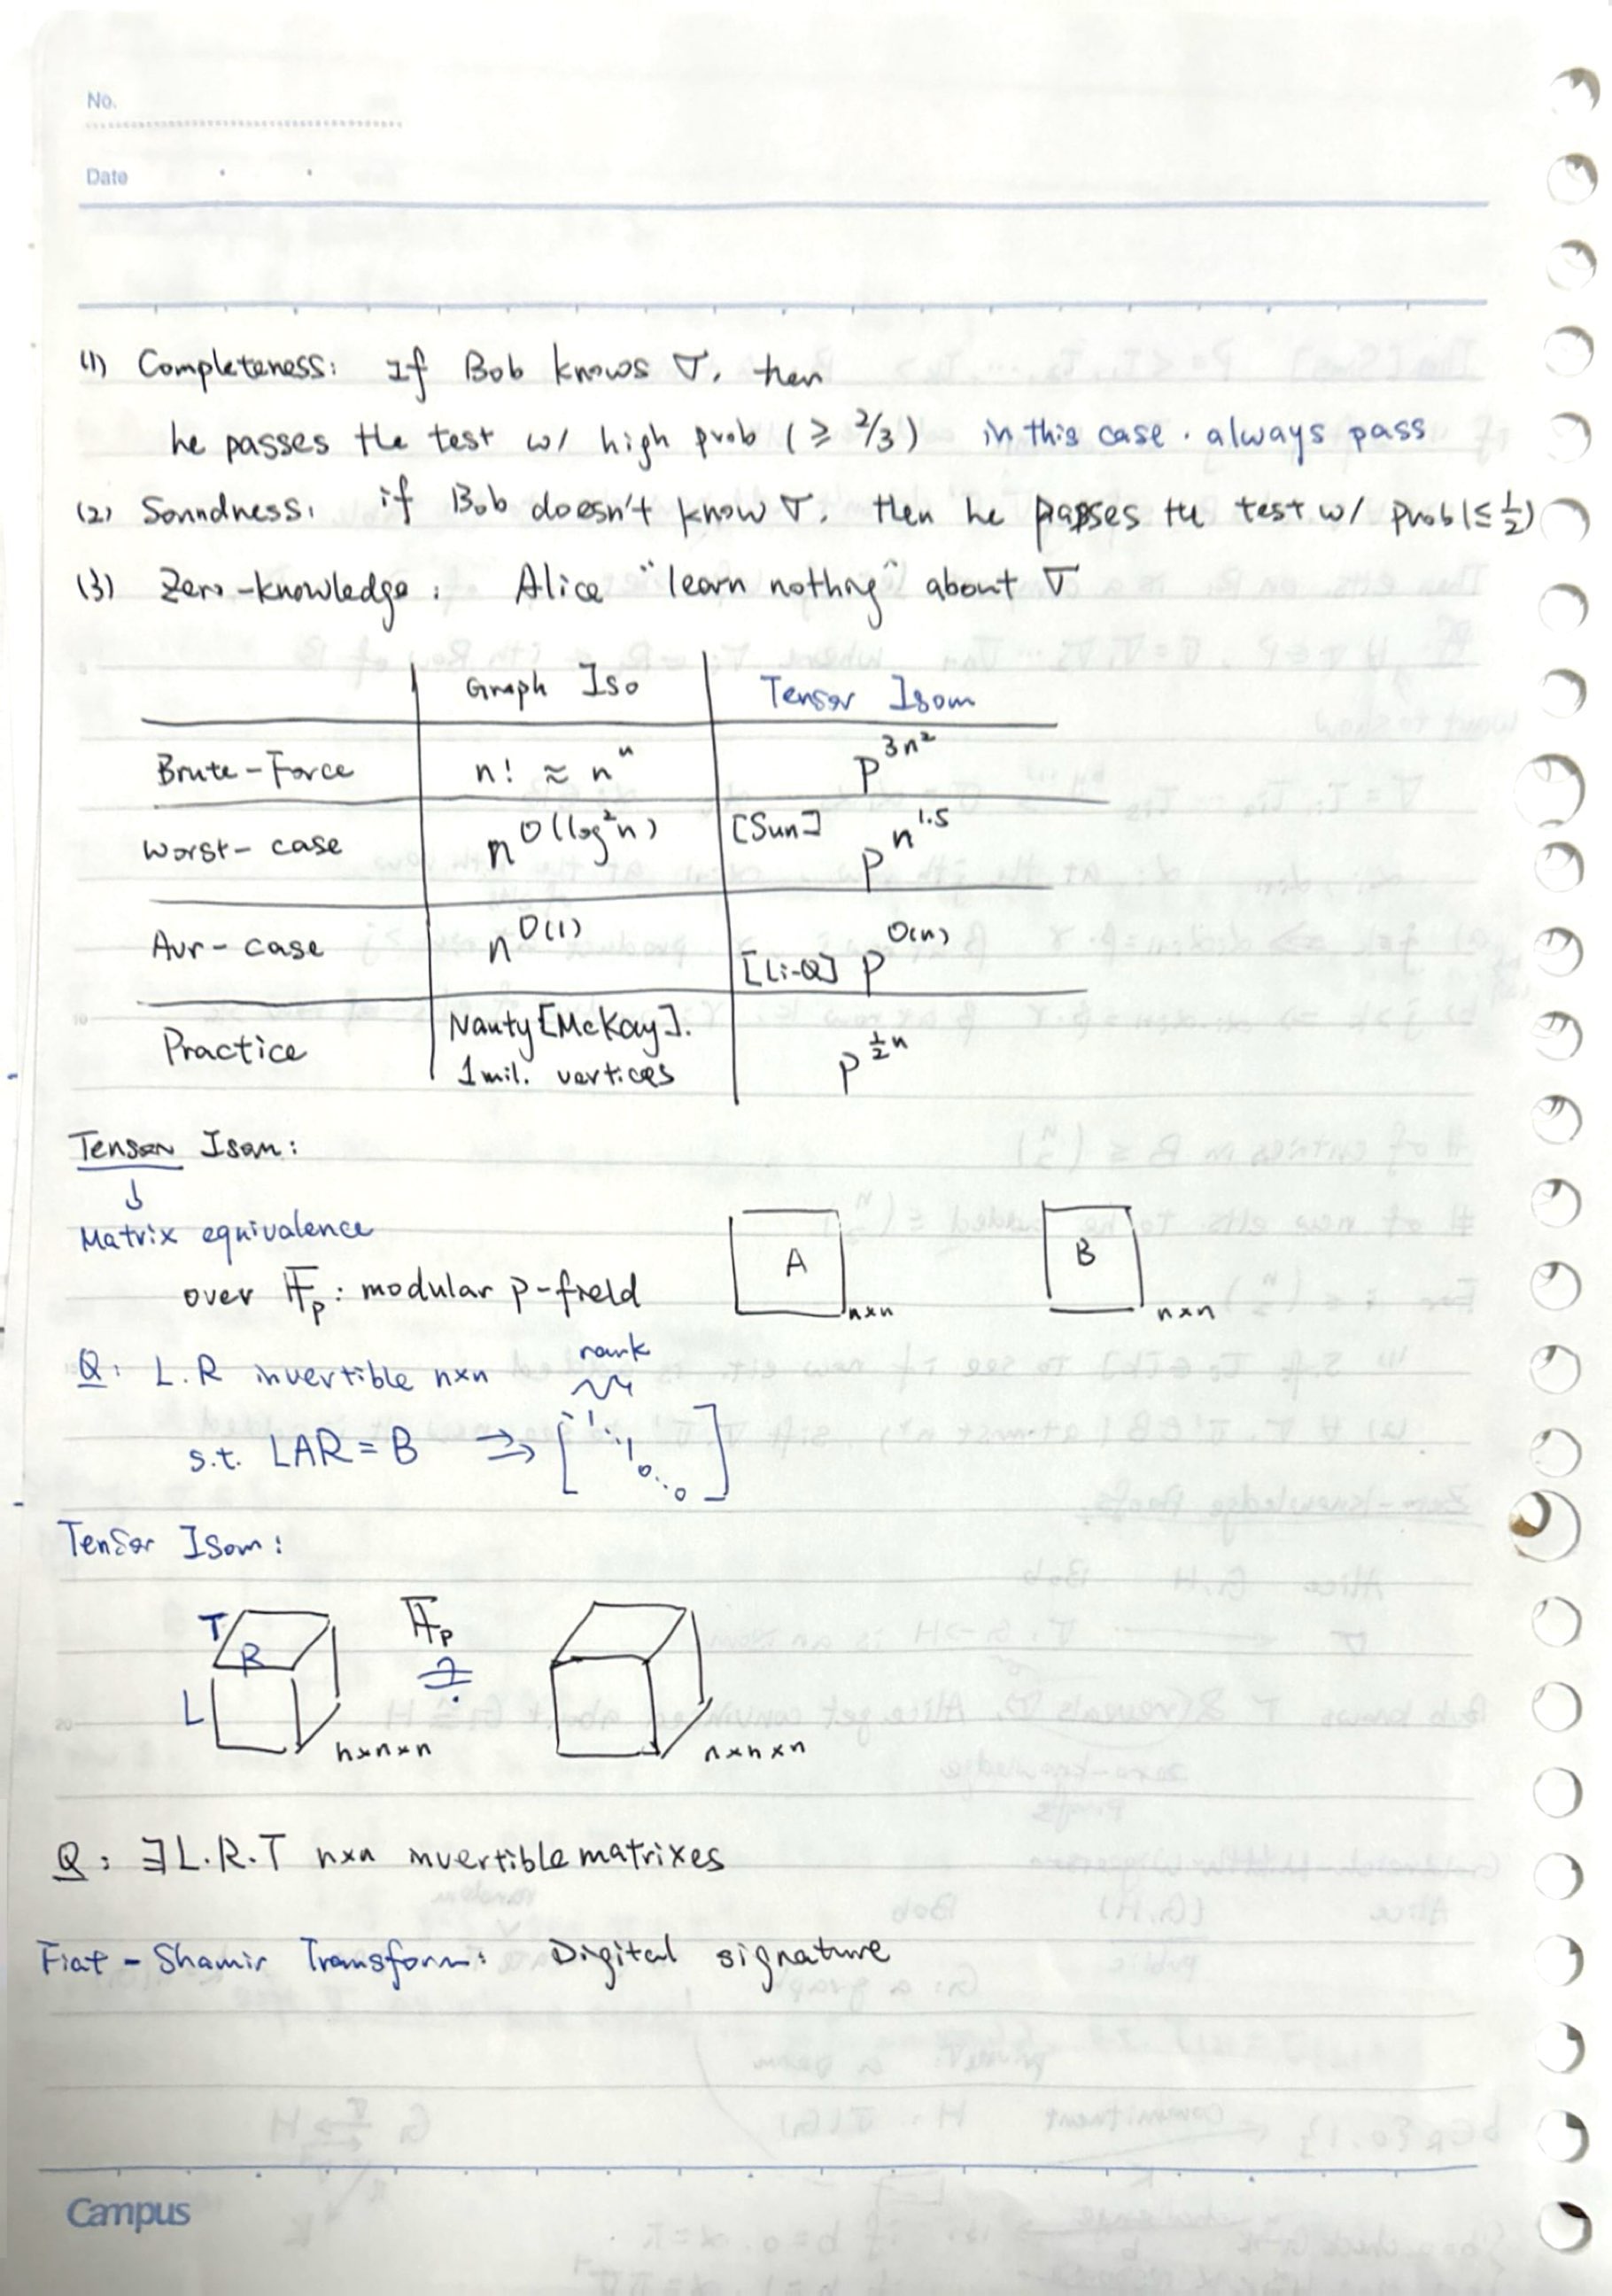 No.
Date
(1) Completeness: If Bob knows σ, then
he passes the test w/ high prob (≥ 2/3) in this case. always pass
(2) Soundness: if Bob doesn't know σ, then he passes the test w/ prob(≤ 1/2)
(3) Zero-knowledge: Alice "learn nothing" about σ
Graph Iso Tensor Isom
Brute-Force n! ≈ n^n p^{3n^2}
Worst-case n^{O(log^2 n)} [Sun] p^{n^{1.5}}
Avr-case n^{O(1)} [Li-Q] p^{O(n)}
Practice Nauty [McKay]. 1 mil. vertices p^{1/2 n}
Tensor Isom:
↓
Matrix equivalence
over 𝔽_p: modular p-field
A n×n B n×n
Q: L.R invertible n×n rank
s.t. LAR = B ⇒ [1 ⋱ 1 0 ⋱ 0]
Tensor Isom:
T R L n×n×n 𝔽_p =? n×n×n
Q: ∃ L.R.T n×n invertible matrixes
Fiat-Shamir Transform: Digital signature
Campus